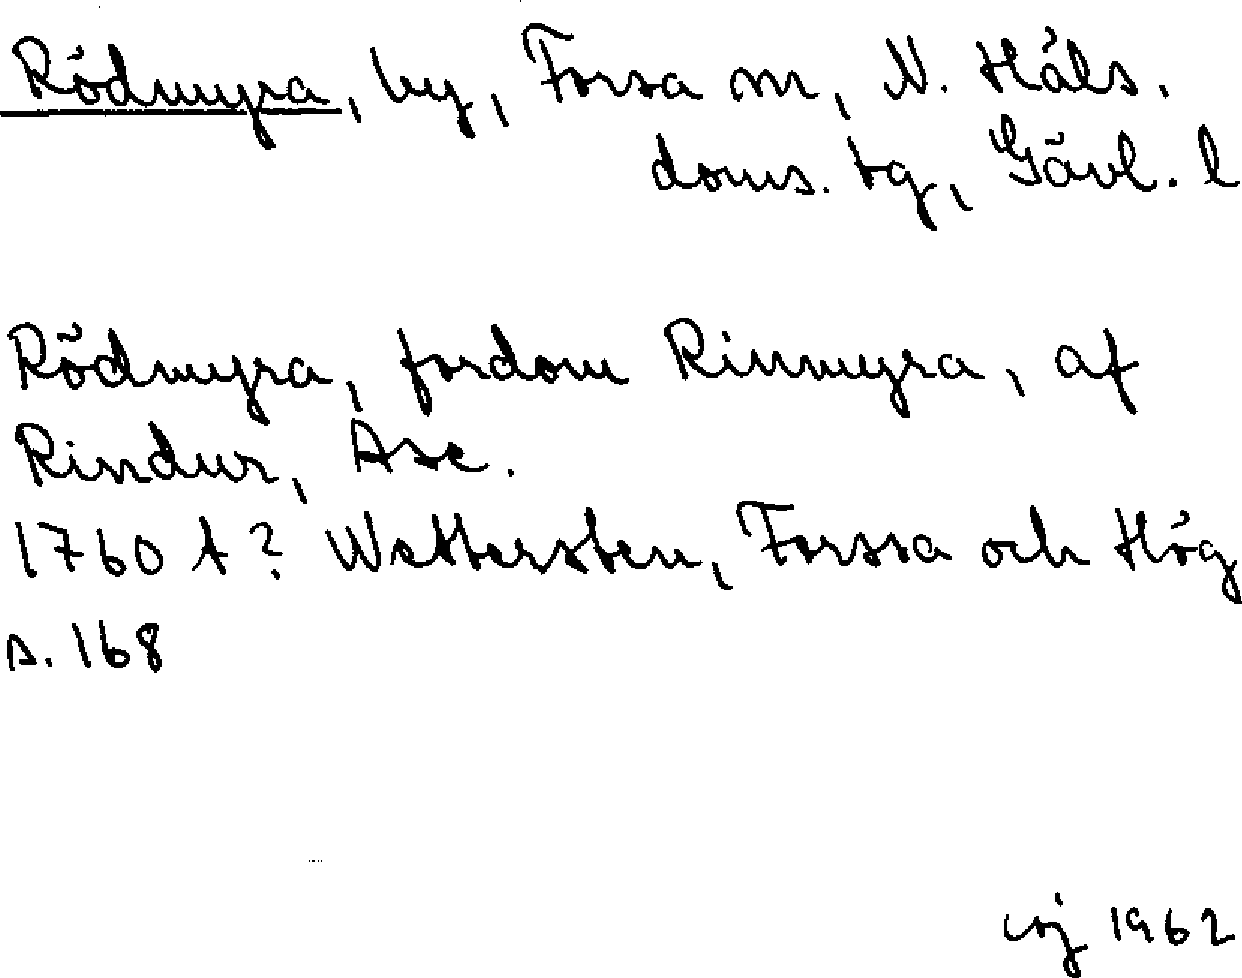 Rödmyra, by, Forsa sn, N. Häls.
doms. tg, Gävl. l
Rödmyra, fordom Rinmyra, af
Rindur, Ase.
1760 t? Wettersten, Forssa och Hög
s. 168
1962